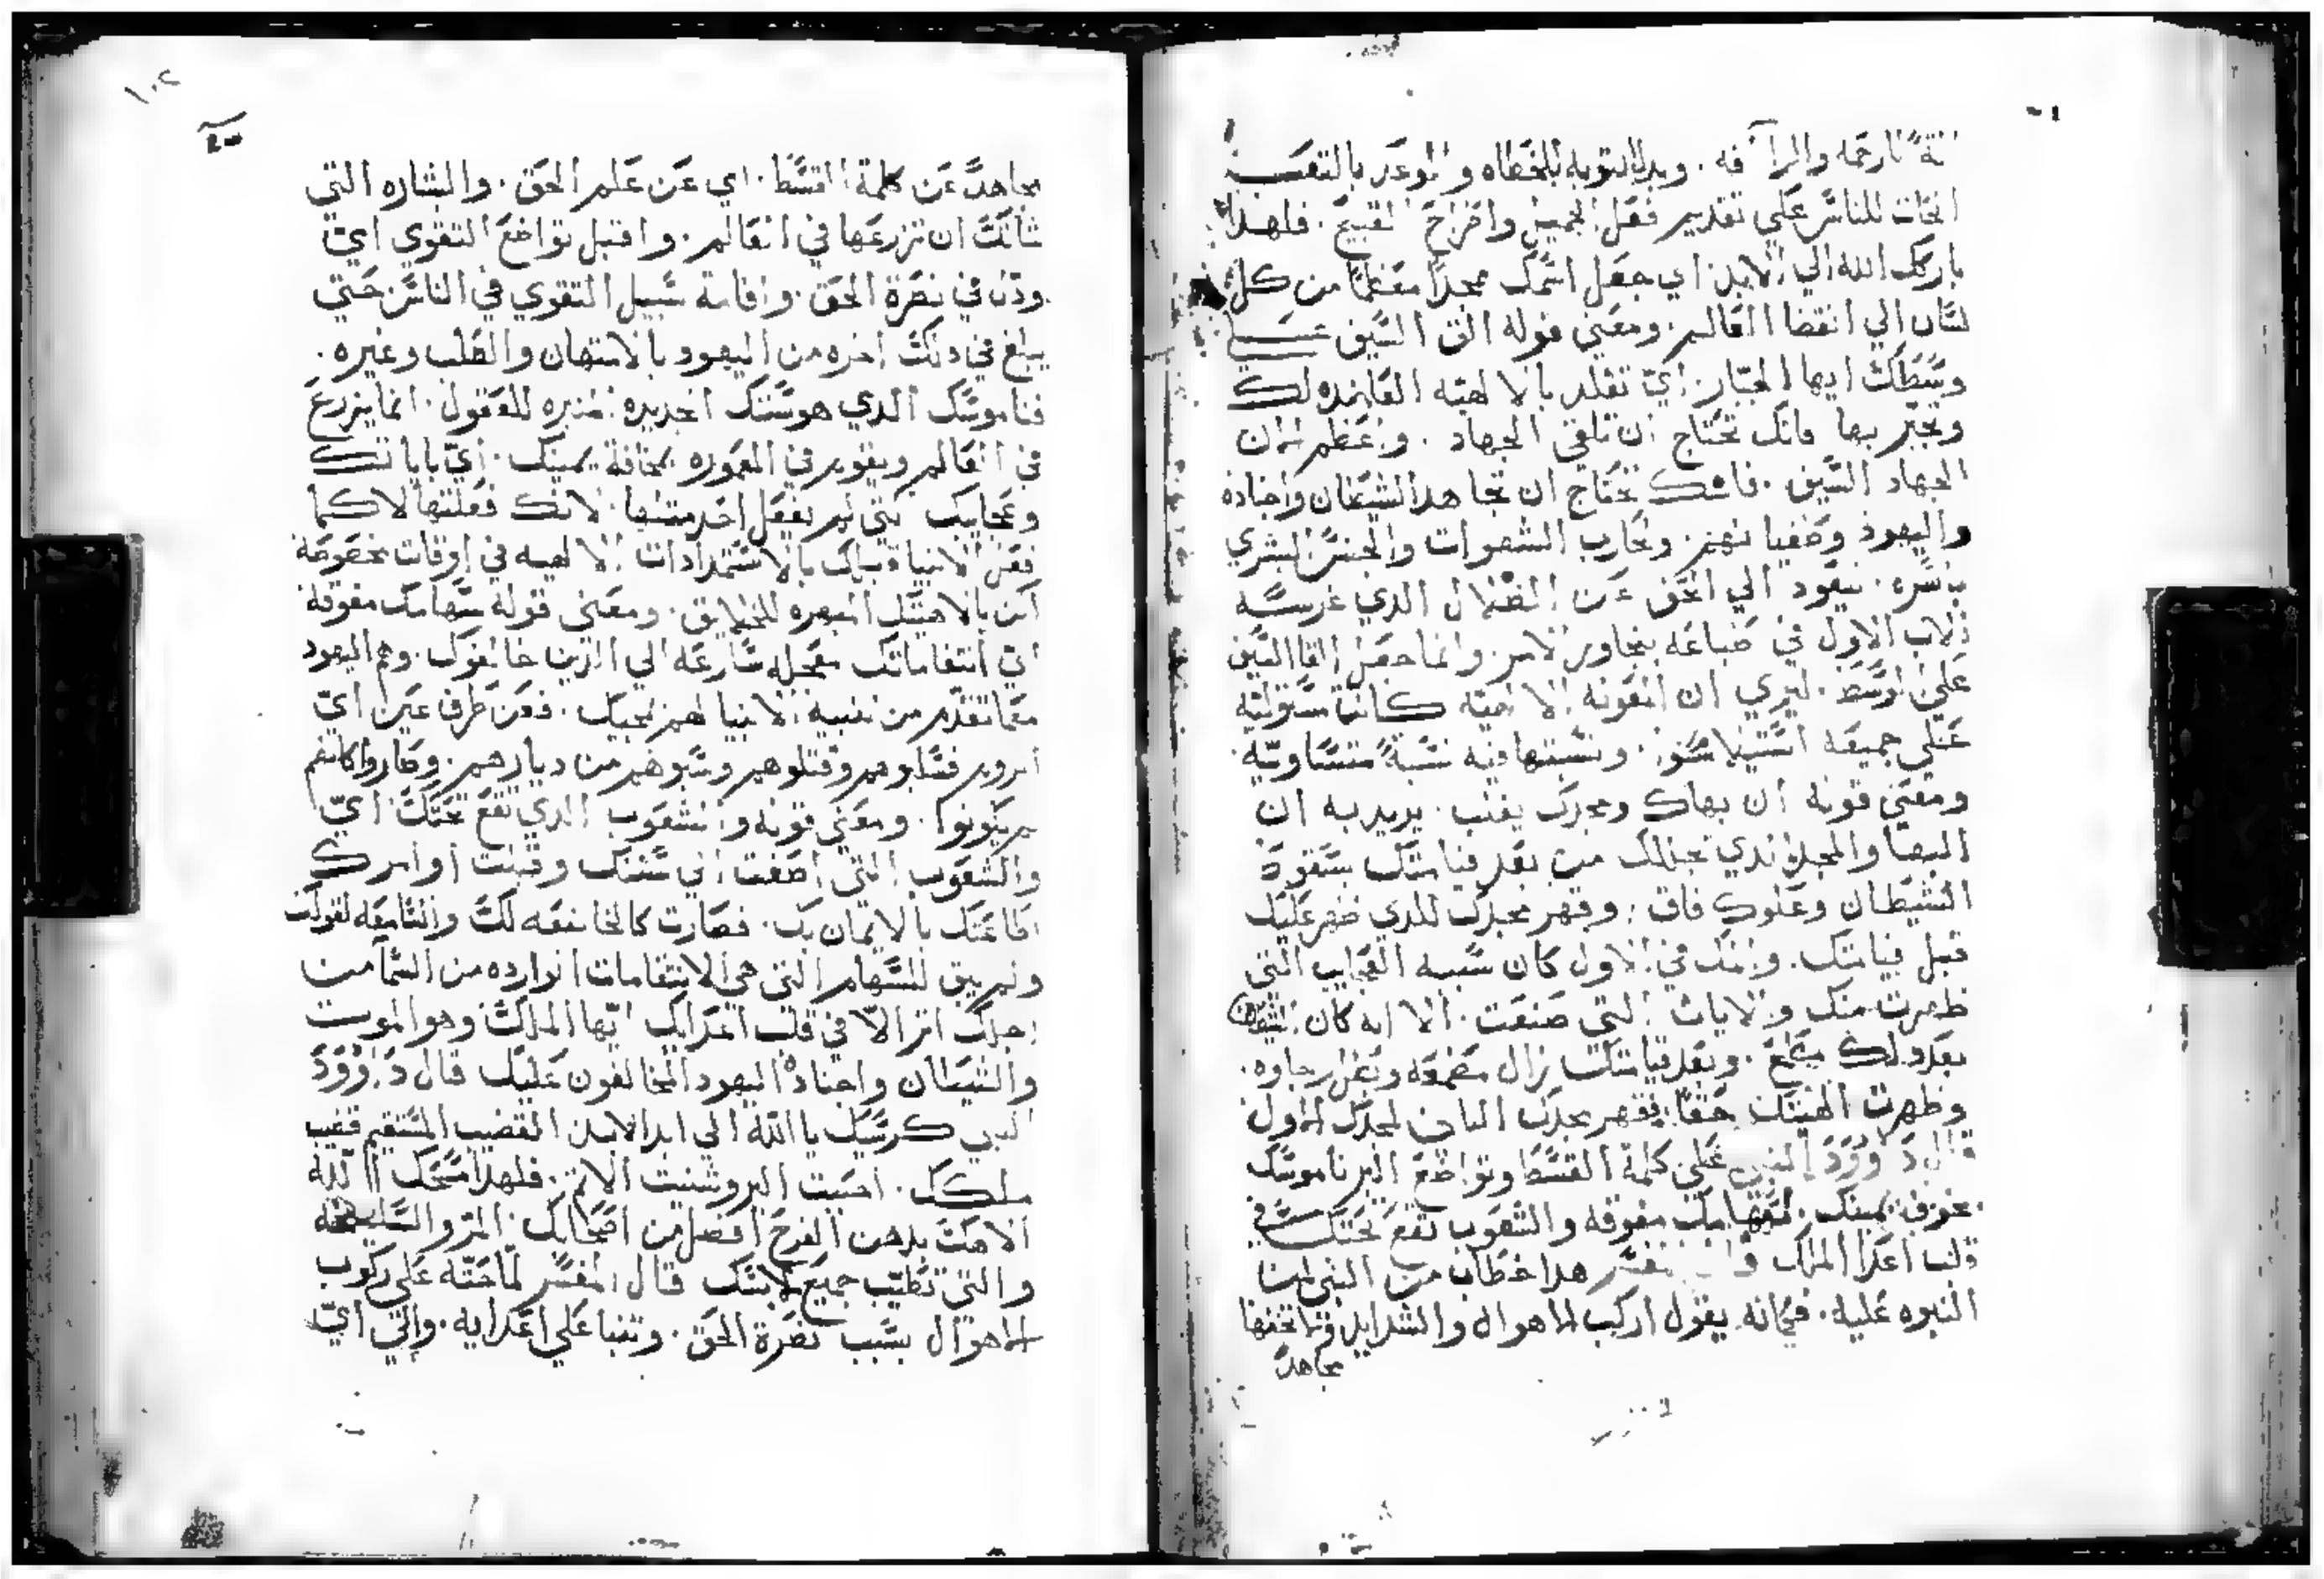 بالرحمه والرآفه. وبدل التوبه للخطاه والوعد بالتعب
للناس علي تقدير فعل الجميل واخراج القبيح. فلهذا
باركك الله الي الابد: اي جعل اسمك ممجداً معظماً من كل
لسان الي انقضا العالم. ومعني قوله الق السيف علي
وسطك ايها الجبار: اي تقلد بالالهيه العاضده لك
وتجبر بها فانك تحتاج ان تلاقي الجهاد. واعظم
الجهاد السيف. فانك تحتاج ان تجاهد الشيطان واجناده
واليهود وطغيانهم. وتحارب الشهوات والجنس البشري
باسره. ليعود الي الحق عن الضلال الذي غرسه
الاب الاول في طباعه بتجاوز الامر. وانما جعل القا السيف
علي الوسط. ليري ان القوه الالهيه كانت مستوليه
علي جميعه استيلا سوا. ونسبتها فيه نسبةً متساويه.
ومعني قوله ان بهاك ومجدك يغلب. يريد به ان
البها والمجد الذي نجالك من بعد قيامتك بسقوط
الشيطان وعلوك فاق. وقهر مجدك للذي ظهر عليك
قبل قيامتك. وانك في الاول كان سببه العجايب التي
ظهرت منك والايات التي صنعت. الا انه كان الشيطان
بعد ذلك يطمع. وبعد قيامتك زال مطمعه وبطل رجاوه.
وظهرت الهيتك حقاً: فقهر مجدك الثاني لمجدك الاول
قال داوود النبي علي كلمة القسط وتواضع البر ناموسك
بخوف يمينك. لسهامك مفوقه والشعوب تقع تحتك في
قلب اعدا الملك قال المفسر هذا خطاب من النبي لابن
النبوه عليه. فكانه يقول اركب الاهوال والشدايد وتخطها
مجاهداً
١٠٢
مجاهداً عن كلمة القسط. اي عن علم الحق. والبشاره التي
شات ان تزرعها في العالم. واقبل تواضع التقوي اي
وذل في نصرة الحق. واقامة سبيل التقوي في الناس حتي
يبلغ في ذلك اخره من اليهود بالامتهان والصلب وغيره.
فناموسك الذي هو سنتك الجديده المنيره للعقول. انما يزرع
في العالم ويقوم في المعموره بمخافة يمينك. اي باياتك
وعجايبك التي لم يفعل احد مثلها. لانك فعلتها لا كما
فعل الانبيا قبلك بالاستمدادات الالهيه في اوقات مخصوصة
لكن بالاهيتك المبهره للخلايق. ومعني قوله سهامك مفوقة
اي انتقاماتك معجله سارعه الي الذين خالفوك. وهم اليهود
معما تقدم من تنبيه الانبيا لهم لمجيك. فعن طرف عين اي
الروم فسلبوهم وقتلوهم وسبوهم من ديارهم. وصاروا كانهم
لم يكونوا. ومعني قوله والشعوب الذي تقع تحتك اي
والشعوب التي اصغت الي سنتك وقبلت اوامرك
اطاعتك بالايمان بك. فصارت كالخاضعه لك والسامعه لقولك
ولم يبق للسهام التي هي الانتقامات الوارده من السما من
اجلك اثر الا في قلب اعدايك ايها الملك وهو الموت
والشيطان واجناده اليهود المخالفون عليك قال داوود
النبي كرسيك يا الله الي ابد الابد القضيب المستقيم قضيب
ملكك. احببت البر وشنيت الاثم. فلهذا مسحك الله
الاهك بدهن الفرح افضل من اصحابك. المر والسليخه
والتي تطيب جميع لابسك قال المفسر لما حثه علي ركوب
الاهوال بسبب نصرة الحق. وتنبا علي اعدايه. والتي اي